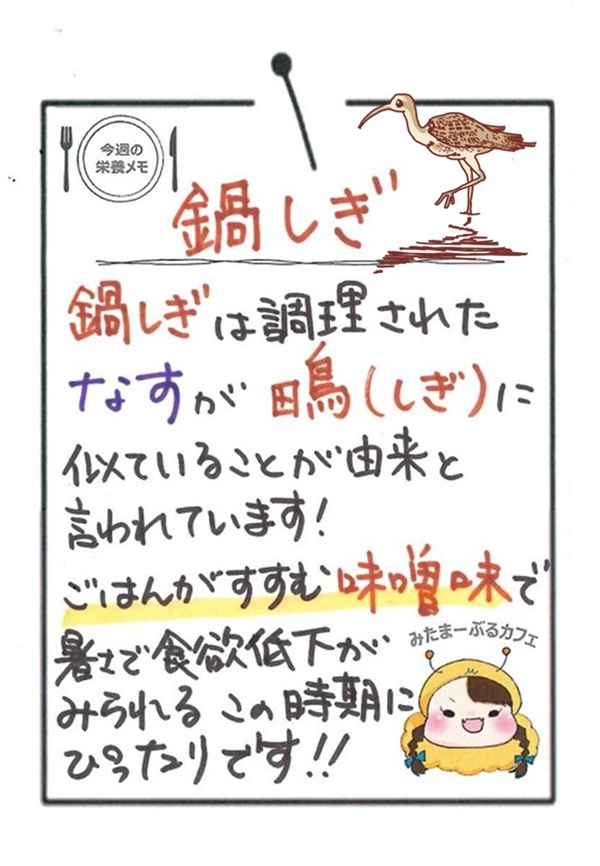 今週の
栄養メモ
鍋しぎ
鍋しぎは調理された
なすが 鴫(しぎ)に
似ていることが由来と
言われています!
ごはんがすすむ味噌味で
暑さで食欲低下が
みられる この時期に
ぴったりです!!
みたまーぶるカフェ